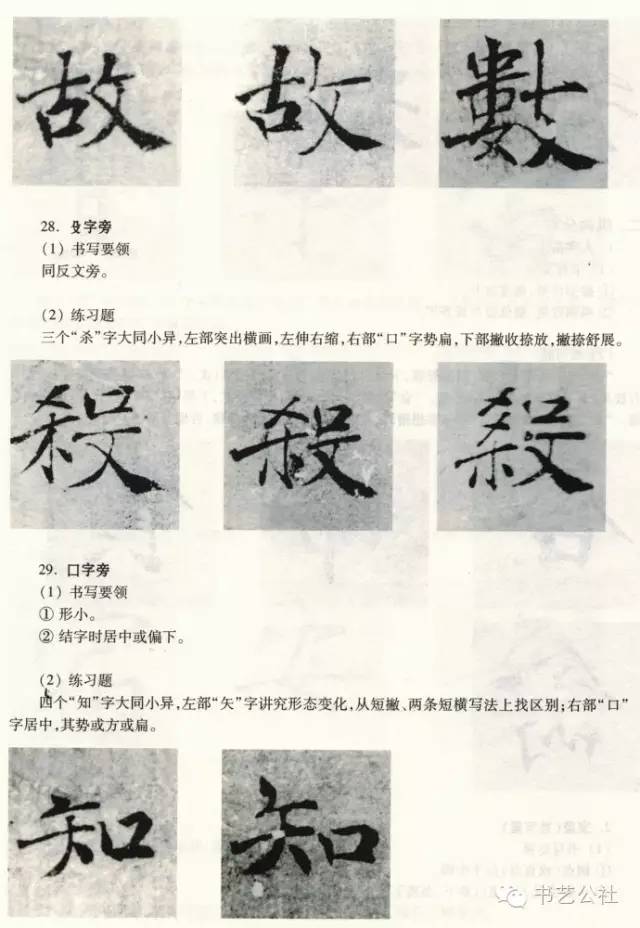 故 故 數
28. 殳字旁
(1) 书写要领
同反文旁。
(2) 练习题
三个“杀”字大同小异,左部突出横画,左伸右缩,右部“口”字势扁,下部撇收捺放,撇捺舒展。
殺 殺 殺
29. 口字旁
(1) 书写要领
① 形小。
② 结字时居中或偏下。
(2) 练习题
四个“知”字大同小异,左部“矢”字讲究形态变化,从短撇、两条短横写法上找区别;右部“口”
字居中,其势或方或扁。
知 知
书艺公社